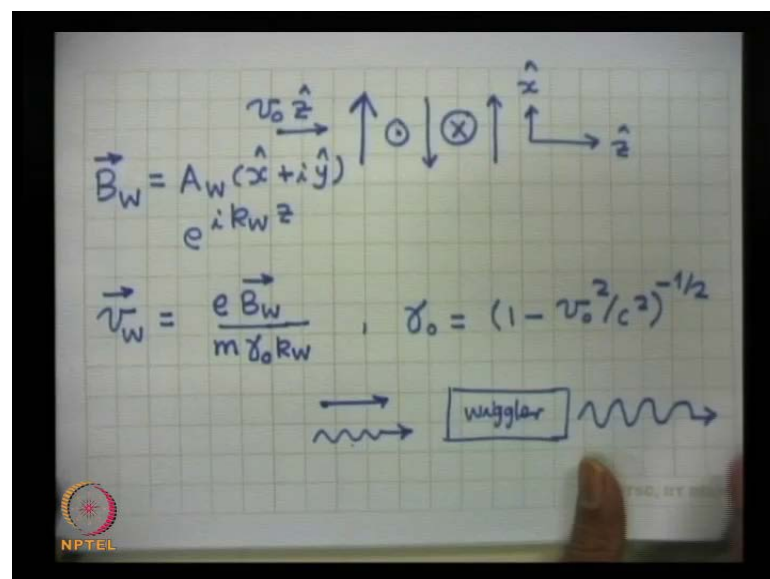 v₀ ẑ
x̂
ẑ
B⃗_W = A_W (x̂ + i ŷ)
e^{i k_W z}
v⃗_W = e B⃗_W / m γ₀ k_W , γ₀ = (1 − v₀²/c²)^{−1/2}
wiggler
NPTEL